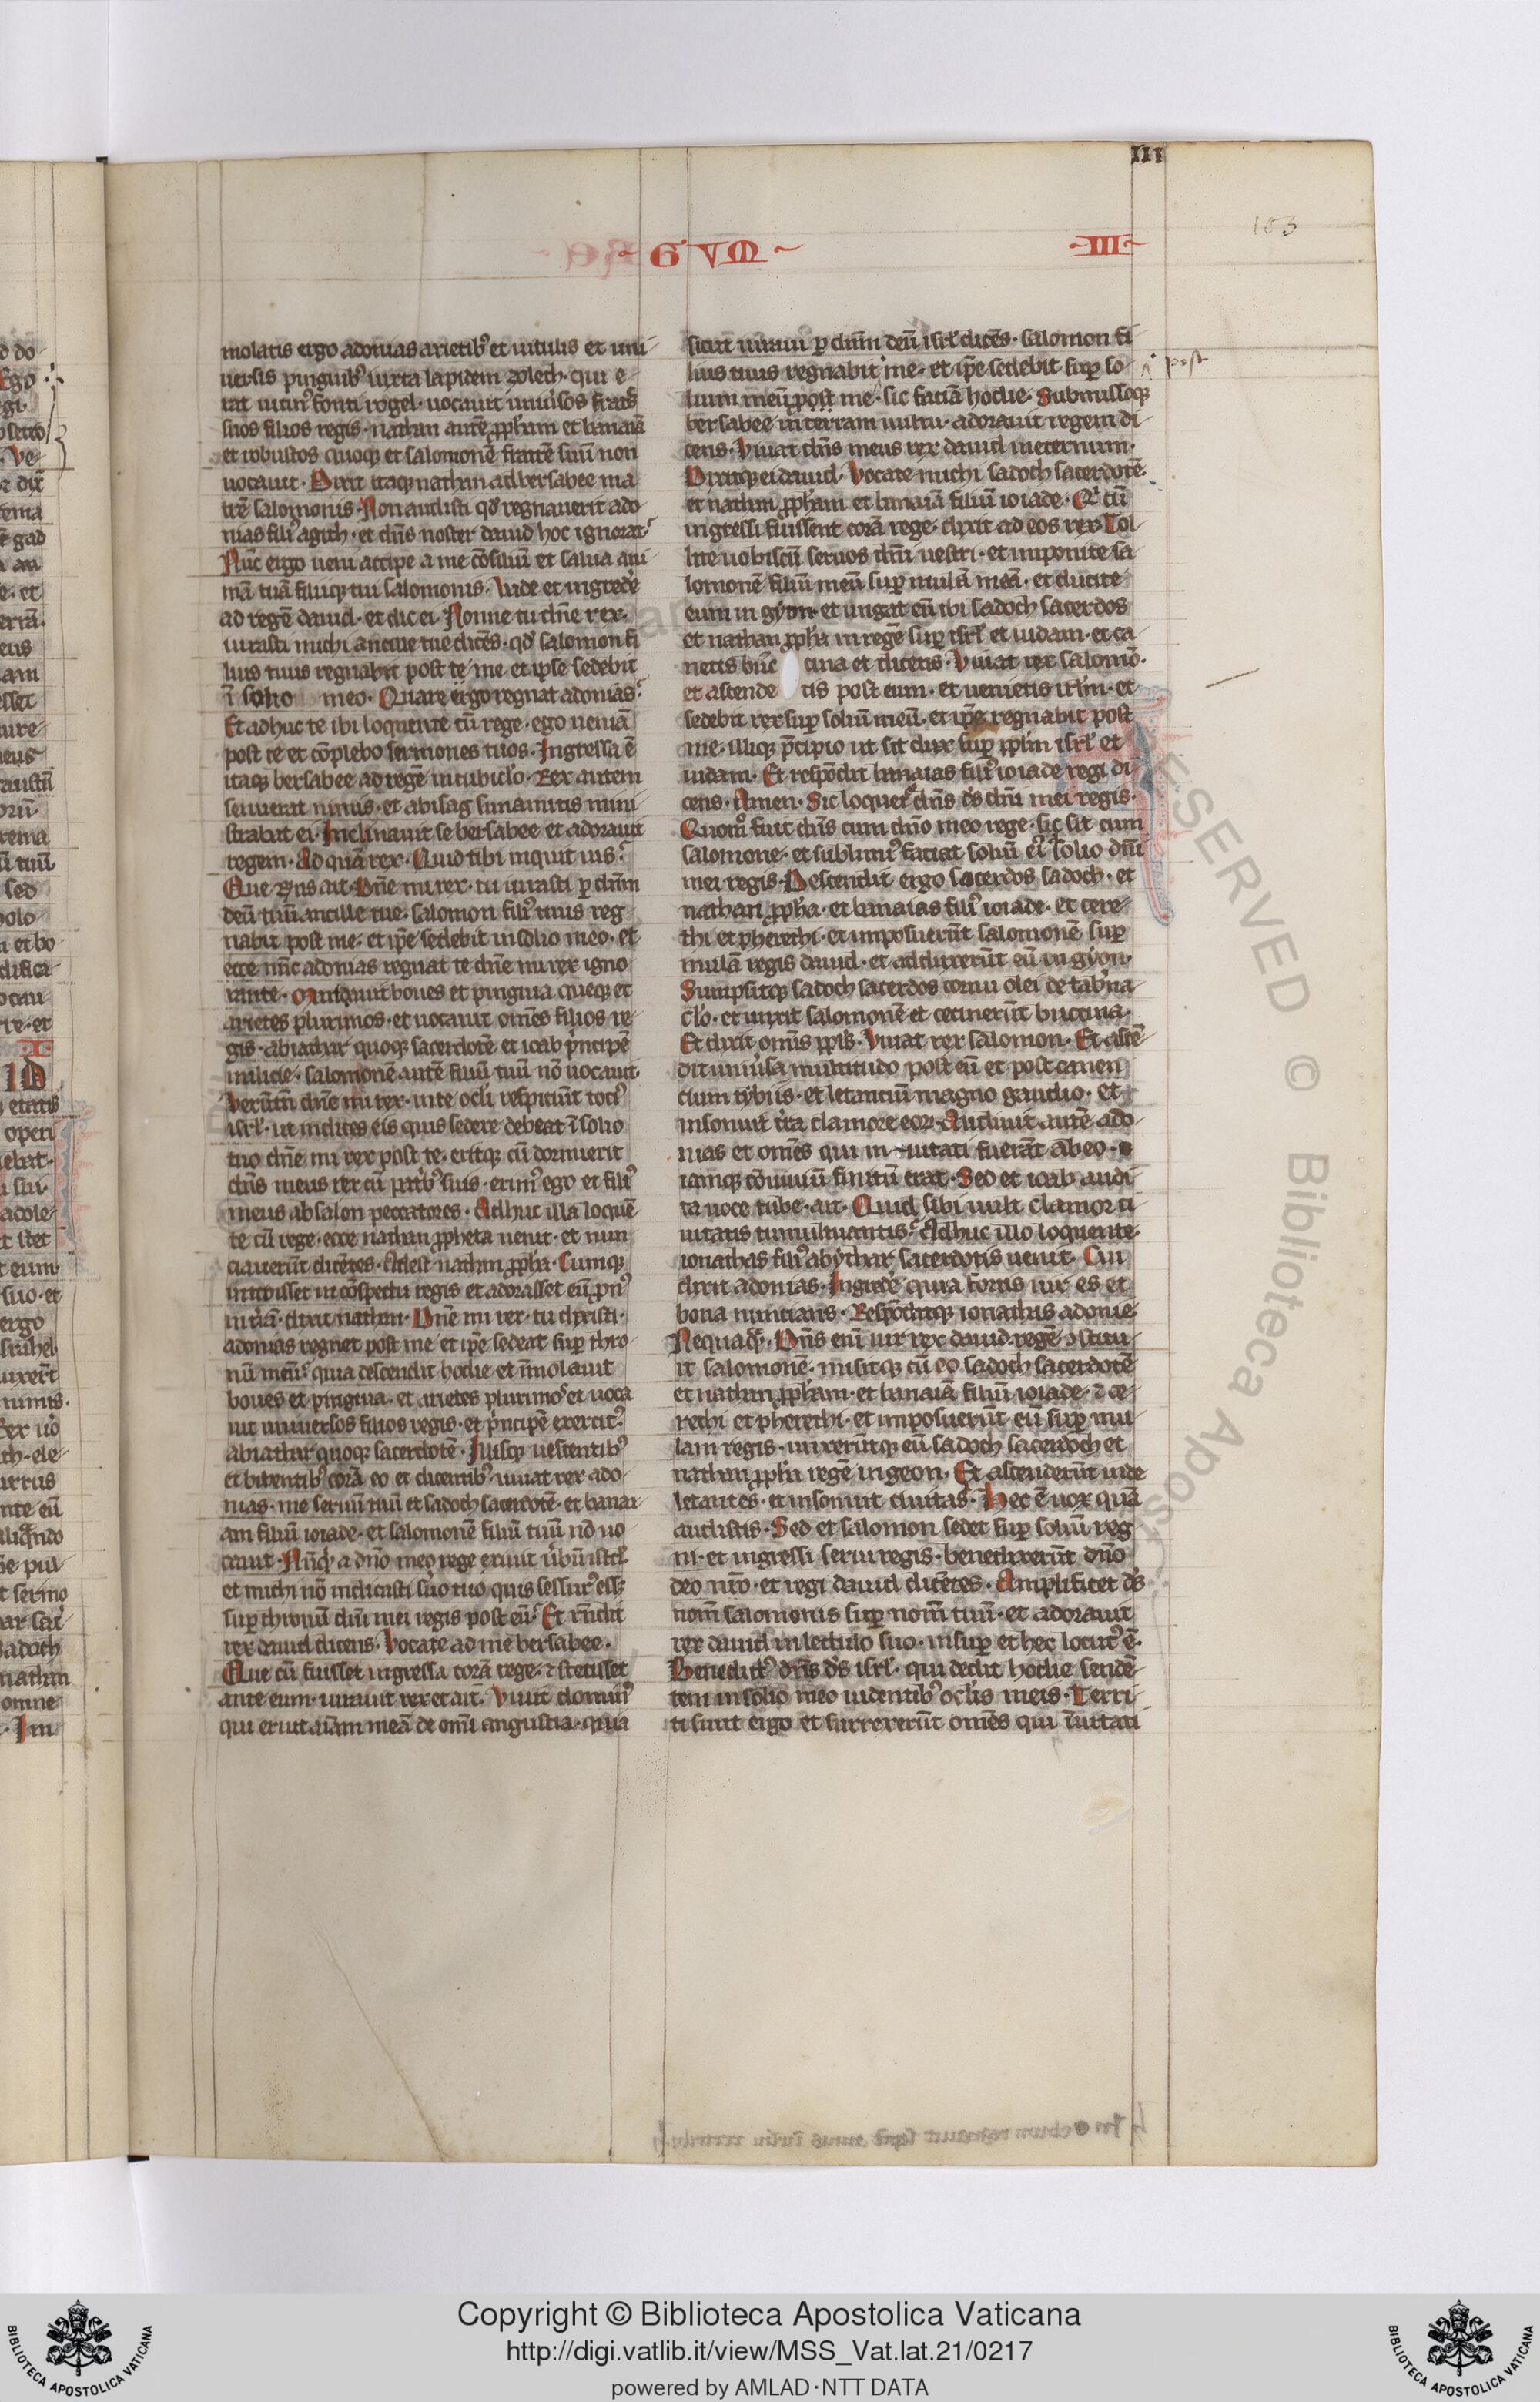 III
163
GVM
III
molatis ergo adonias arietib⁹ et uitulis et uni
uersis pinguib⁹ iuxta lapidem zolech · qui e
rat uicin⁹ fonti rogel · uocauit uniu̾sos frat̾s
suos filios regis · nathan autē ꝓph̄am et banaiā
et robustos quoqꝫ et salomonē fratrē suū non
uocauit · Dixit itaqꝫ nathan ad bersabee ma
trē salomonis · Non audisti qd̾ regnauerit ado
nias fili⁹ agith · et dn̄s noster dauid hoc ignorat
Nūc ergo ueni accipe a me cōsiliū et salua ani
mā tuā filiiqꝫ tui salomonis · Vade et ingrede̾
ad regē dauid · et dic ei · Nonne tu dn̄e rex ·
iurasti michi ancille tue dicēs · qd̾ salomon fi
lius tuus regnabit post te me et ipse sedebit
ī solio meo · Quare ergo regnat adonias
Et adhuc te ibi loquente cū rege · ego ueniā
post te et cōplebo sermones tuos · Ingressa ē
itaqꝫ bersabee ad regē in cubic̾lo · Rex autem
senuerat nimis · et abisag sunamitis mini
strabat ei · Inclinauit se bersabee et adorauit
regem · Ad quā rex · Quid tibi inquit uis
Que rn̄s ait · Dn̄e mi rex · tu iurasti ꝑ dn̄m
deū tuū ancille tue · salomon fili⁹ tuus reg
nabit post me · et ip̄e sedebit in solio meo · et
ecce nūc adonias regnat te dn̄e mi rex igno
rante · mactauit boues et pinguia queqꝫ et
arietes plurimos · et uocauit om̄es filios re
gis · abiathar quoqꝫ sacerdotē et ioab p̾ncipē
milicie · salomonē autē filiū tuū nō uocauit
Verūtn̄ dn̄e mi rex · in te ocl̾i respiciūt toci⁹
isrl̾ · ut indices eis quis sedere debeat ī solio
tuo dn̄e mi rex post te · eritqꝫ cū dormierit
dn̄s meus rex cū patrib⁹ suis · erim⁹ ego et fili⁹
meus absalon peccatores · Adhuc illa loquē
te cū rege · ecce nathan ꝓpheta uenit · et nun
ciauerūt dicētes · Adest nathan ꝓph̄a · Cumqꝫ
introisset in cōspectu regis et adorasset eū ꝓn⁹
in t̾rā · dixit nathan · Dn̄e mi rex · tu dixisti ·
adonias regnet post me et ip̄e sedeat suꝑ thro
nū meū · quia descendit hodie et īmolauit
boues et pinguia · et arietes plurimos et uoca
uit uniuersos filios regis · et p̾ncipē exercit⁹
abiathar quoqꝫ sacerdotē · Illisqꝫ uescentib⁹
et bibentib⁹ corā eo et dicentib⁹ uiuat rex ado
nias · me seruū tuū et sadoch sacerdotē · et banai
am filiū ioiade · et salomonē filiū tuū nō uo
cauit · Nūqd̾ a dn̄o meo rege exiuit u̾bū istd̾
et michi nō indicasti s̾uo tuo quis sessur⁹ ess̾
suꝑ thronū dn̄i mei regis post eū · Et rn̄dit
rex dauid dicens · Vocate ad me bersabee ·
Que cū fuisset ingressa corā rege · ⁊ stetisset
ante eum · iurauit rex et ait · Viuit domin⁹
qui eruit aīam meā de om̄i angustia · quia
sicut iuraui ꝑ dn̄m deū isrl̾ dicēs · salomon fi
lius tuus regnabit me · et ip̄e sedebit suꝑ so
post
lium meū post me · sic faciā hodie · Submissoqꝫ
bersabee in terram uultu · adorauit regem di
cens · Viuat dn̄s meus rex dauid ineternum ·
Dixitqꝫ ei dauid · Vocate michi sadoch sacerdotē
et nathan ꝓph̄am et banaiā filiū ioiade · Q̾ cū
ingressi fuissent corā rege · dixit ad eos rex · Tol
lite uobiscū seruos dn̄i uestri · et imponite sa
lomonē filiū meū suꝑ mulā meā · et ducite
eum in gyon et ungat eū ibi sadoch sacerdos
et nathan ꝓph̄a in regē suꝑ isrl̾ et iudam · et ca
netis buc cina et dicetis · Viuat rex salomō ·
et ascende tis post eum · et uenietis irl̄m · et
sedebit rex suꝑ soliū meū · et ip̄e regnabit post
me · illiqꝫ p̄cipio ut sit dux suꝑ ppl̄m isrl̾ et
iudam · Et respōdit banaias fili⁹ ioiade regi di
cens · Amen · Sic loquet̾ dn̄s ds̄ dn̄i mei regis ·
Quom̊ fuit dn̄s cum dn̄o meo rege · sic sit cum
salomone · et sublimi⁹ faciat soliū ei⁹ solio dn̄i
mei regis · Descendit ergo sacerdos sadoch · et
nathan ꝓph̄a · et banaias fili⁹ ioiade · et cere
thi et pherethi · et imposuerūt salomonē suꝑ
mulā regis dauid · et adduxerūt eū in gyon ·
Sumpsitqꝫ sadoch sacerdos cornu olei de tab̾na
cl̾o · et unxit salomonē et cecinerūt buccina ·
Et dixit omīs ppl̾s · Viuat rex salomon · Et ascē
dit uniu̾sa multitudo post eū et post canen
cium tybiis · et letanciū magno gaudio · et
insonuit t̾ra clamore eoꝝ · Audiuit autē ado
nias et om̄es qui inuitati fuerāt ab eo ·
iamqꝫ cōuiuiū finitū erat · Sed et ioab audi
ta uoce tube · ait · Quid sibi uult clamor ci
uitatis tumultuantis · Adhuc illo loquente
ionathas fili⁹ abythar sacerdotis uenit · Cui
dixit adonias · Ingrede̾ quia fortis uir es et
bona nuncians · Respōditqꝫ ionathas adonie
Nequaq̄ · Dn̄s eni̅ uir rex dauid regē ↄstitu
it salomonē · misitqꝫ cū eo sadoch sacerdotē
et nathan ꝓph̄am · et banaiā filiū ioiade · ⁊ ce
rethi et pherethi · et imposuerūt eū suꝑ mu
lam regis · unxerūtqꝫ eū sadoch sacerdoch et
nathan ꝓph̄a regē in geon · Et ascenderūt inde
letantes · et insonuit ciuitas · Hec ē uox quā
audistis · Sed et salomon sedet suꝑ soliū reg
ni · et ingressi serui regis · benedixerūt dn̄o
deo nr̄o · et regi dauid dicētes · Amplificet ds̄
nom̄ salomonis suꝑ nom̄ tuū · et adorauit
rex dauid in lectulo suo · insuꝑ et hec locut⁹ ē ·
Benedict⁹ dn̄s ds̄ isrl̾ · qui dedit hodie sendē
tem in solio meo uidentib⁹ ocl̾is meis · Terri
ti sunt ergo et surrexerūt om̄es qui īuitati
Copyright © Biblioteca Apostolica Vaticana
http://digi.vatlib.it/view/MSS_Vat.lat.21/0217
powered by AMLAD·NTT DATA
BIBLIOTECA APOSTOLICA VATICANA
BIBLIOTECA APOSTOLICA VATICANA